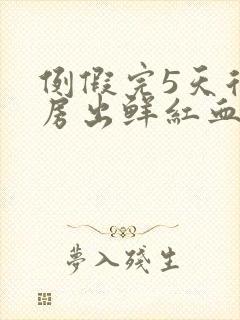 例假完5天行
房出鲜红血
梦入残生